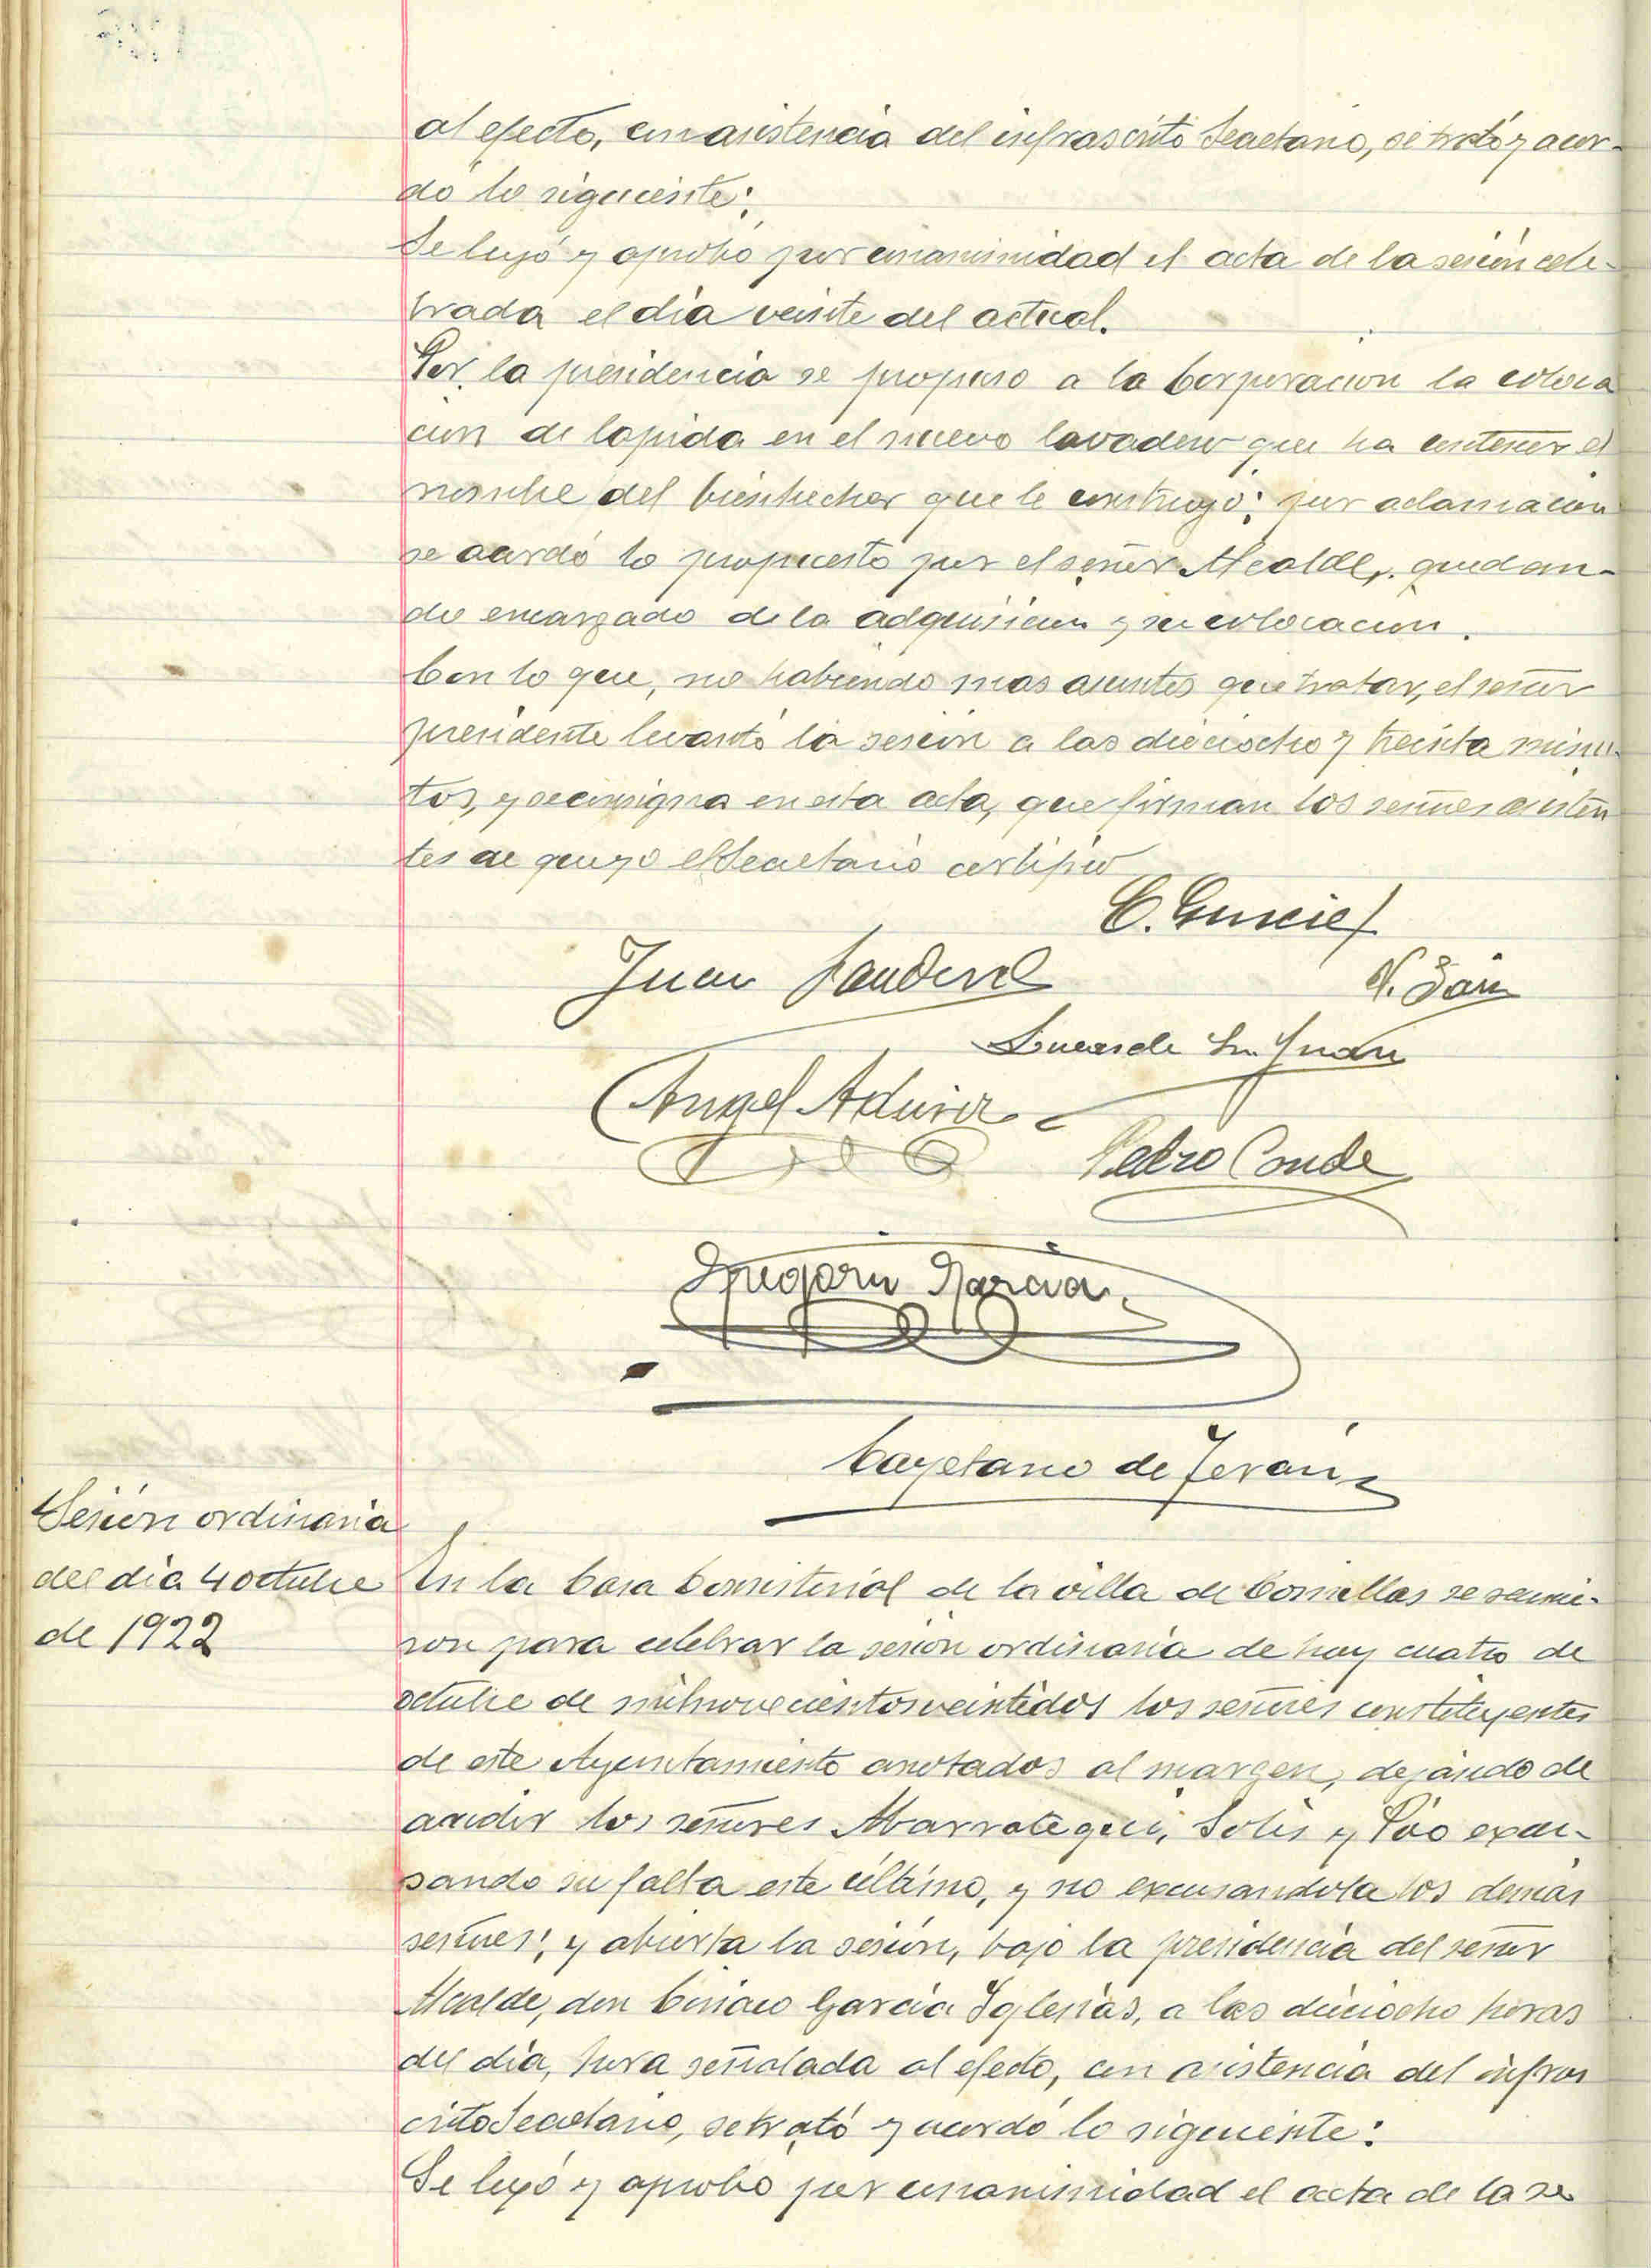 al efecto, con asistencia del infrascrito Secretario, se trató y acor-
dó lo siguiente:
Se leyó y aprobó por unanimidad el acta de la sesión cele-
brada el día veinte del actual.
Por la presidencia se propuso a la Corporacion la coloca
cion de lapida en el nuevo lavadero que ha contener el
nombre del bienhechor que le construyó; por aclamacion
se acordó lo propuesto por el señor Alcalde, quedan-
do encargado de la adquisicion y su colocacion.
Con lo que, no habiendo mas asuntos que tratar, el señor
presidente levantó la sesión a las dieciocho y treinta minu-
tos, y se consigna en esta acta, que firman los señores asisten
tes de que yo el Secretario certifico
C. García
Juan Sandoval
Lucas de Sn. Juan
Angel
Pedro Conde
Gregorio Garcia
Cayetano de Terán
Sesión ordinaria
del dia 4 octubre
de 1922
En la Casa Consistorial de la villa de Comillas se reunie-
ron para celebrar la sesión ordinaria de hoy cuatro de
octubre de milnovecientosveintidos los señores constituyentes
de este Ayuntamiento anotados al margen, dejando de
acudir los señores Abarrategui, Solis y Pío excu-
sando su falta este último, y no excusandola los demás
señores; y abierta la sesión, bajo la presidencia del señor
Alcalde, don Ciriaco García Iglesias, a las dieciocho horas
del día, hora señalada al efecto, con asistencia del infras
crito Secretario, se trató y acordó lo siguiente:
Se leyó y aprobó por unanimidad el acta de la se